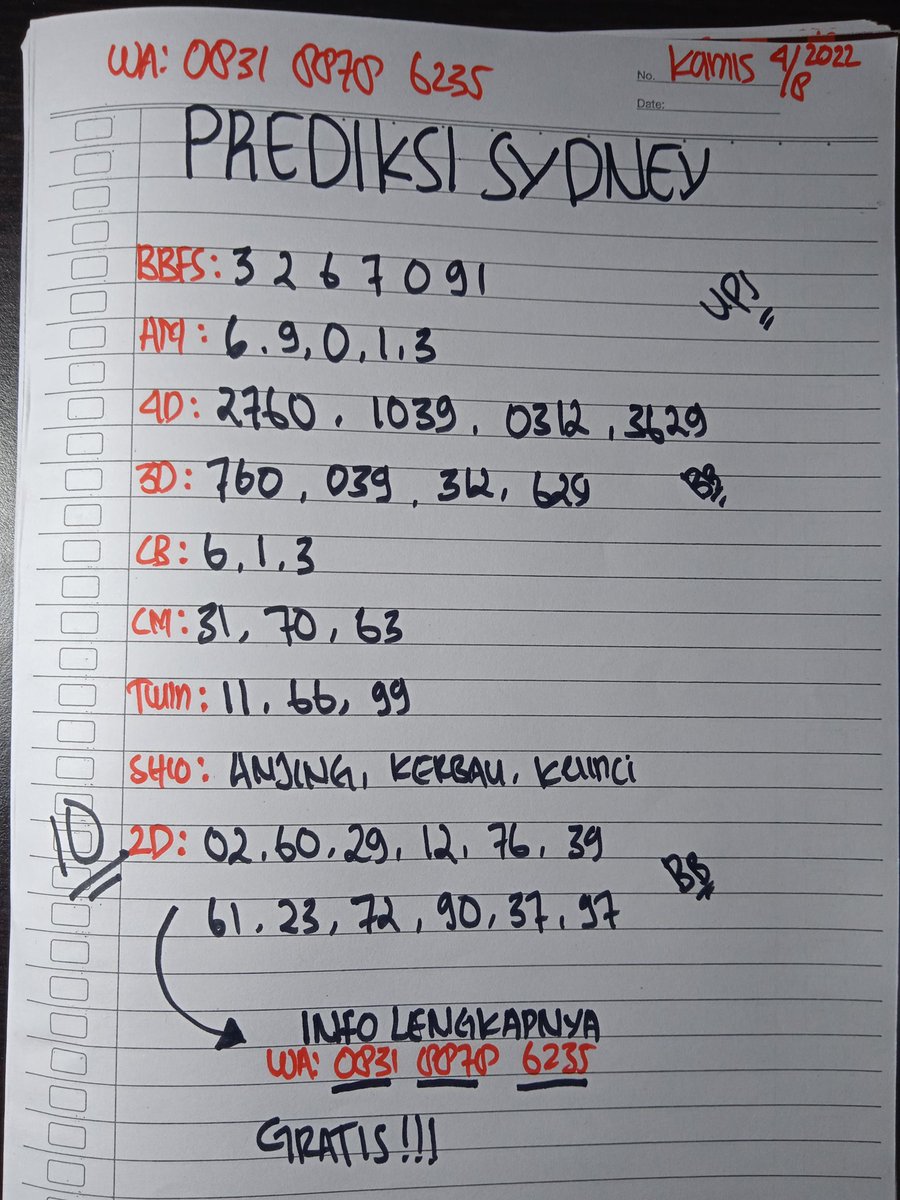 WA: 0831 8878 6235
No. Kamis 4/8 2022
Date:
PREDIKSI SYDNEY
BBFS: 3 2 6 7 0 9 1
AM: 6.9,0,1,3
4D: 2760. 1039. 0312, 3629
3D: 760, 039, 312, 629
BB
CB: 6,1,3
CM: 31, 70, 63
Twin: 11. 66, 99
SHIO: ANJING, KERBAU, Kelinci
10 2D: 02.60.29, 12, 76, 39
BB
61, 23, 72, 90, 37, 97
INFO LENGKAPNYA
WA: 0831 8878 6235
GRATIS!!!